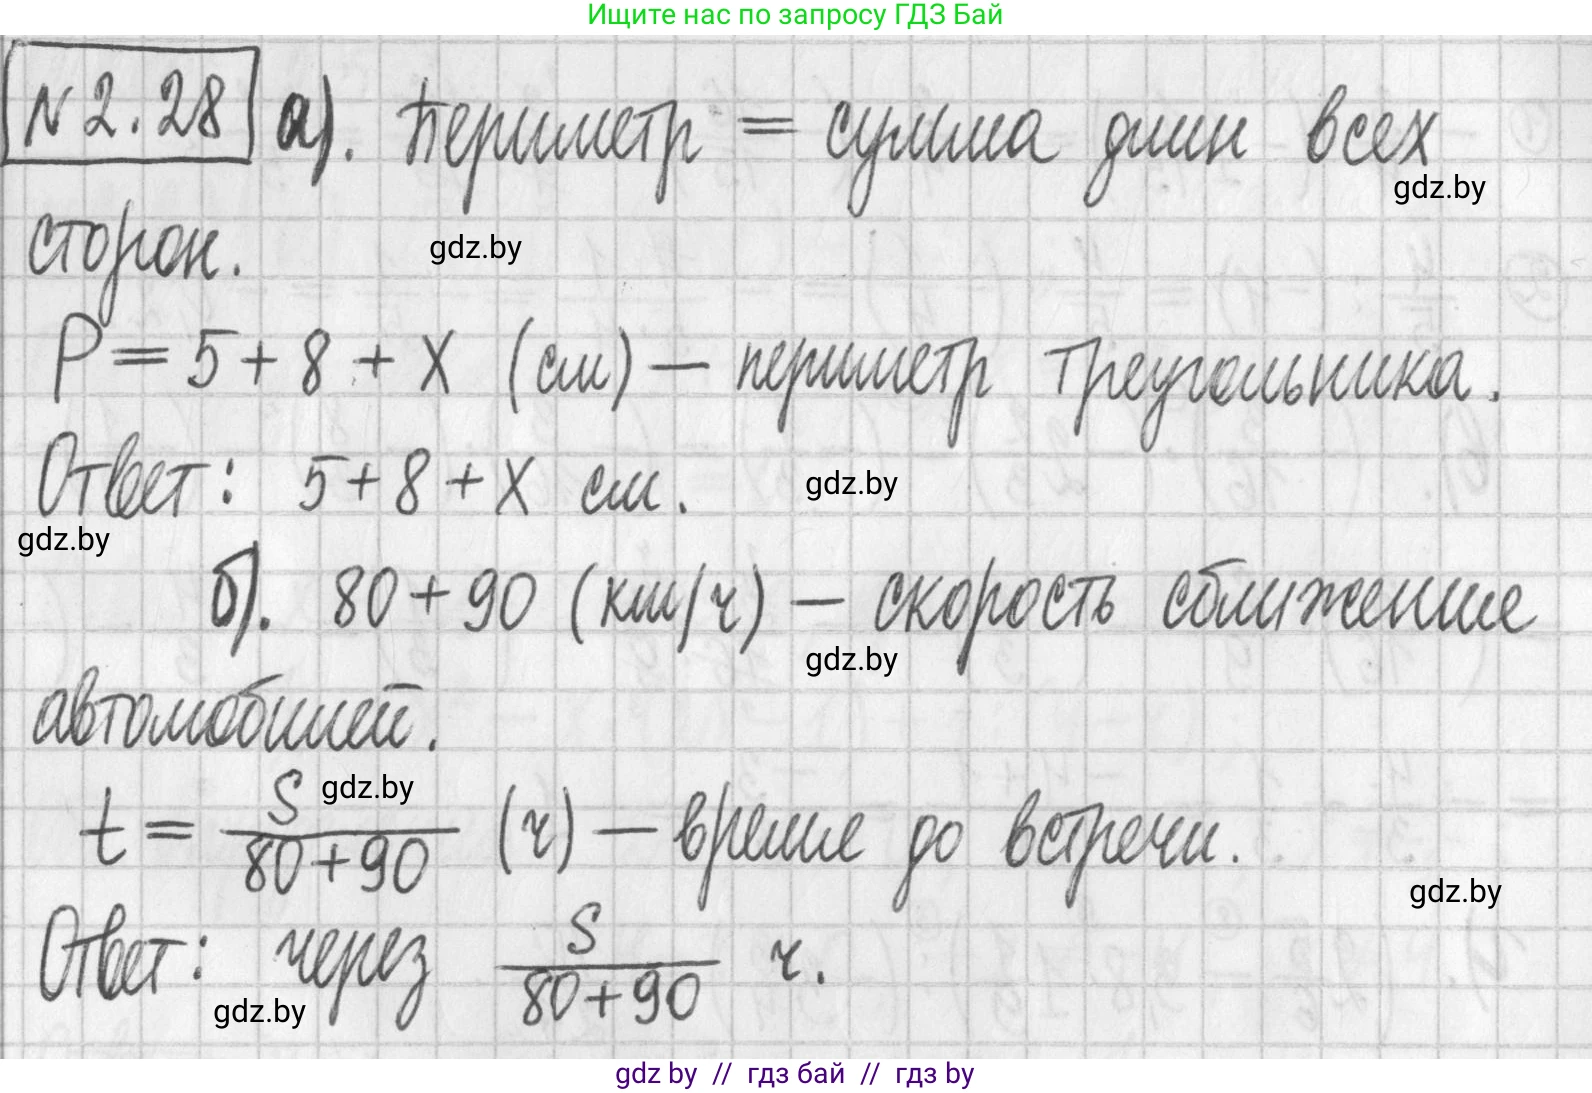 Ищите нас по запросу ГДЗ Бай
N 2.28 а). Периметр = сумма длин всех
gdz.by
сторон.
gdz.by
P = 5 + 8 + X (см) — периметр треугольника.
Ответ: 5 + 8 + X см.
gdz.by
gdz.by
б). 80 + 90 (км/ч) — скорость сближение
gdz.by
автомобилей.
gdz.by
t = S/(80+90) (ч) — время до встречи.
gdz.by
Ответ: через S/(80+90) ч.
gdz.by
gdz by // гдз бай // гдз by